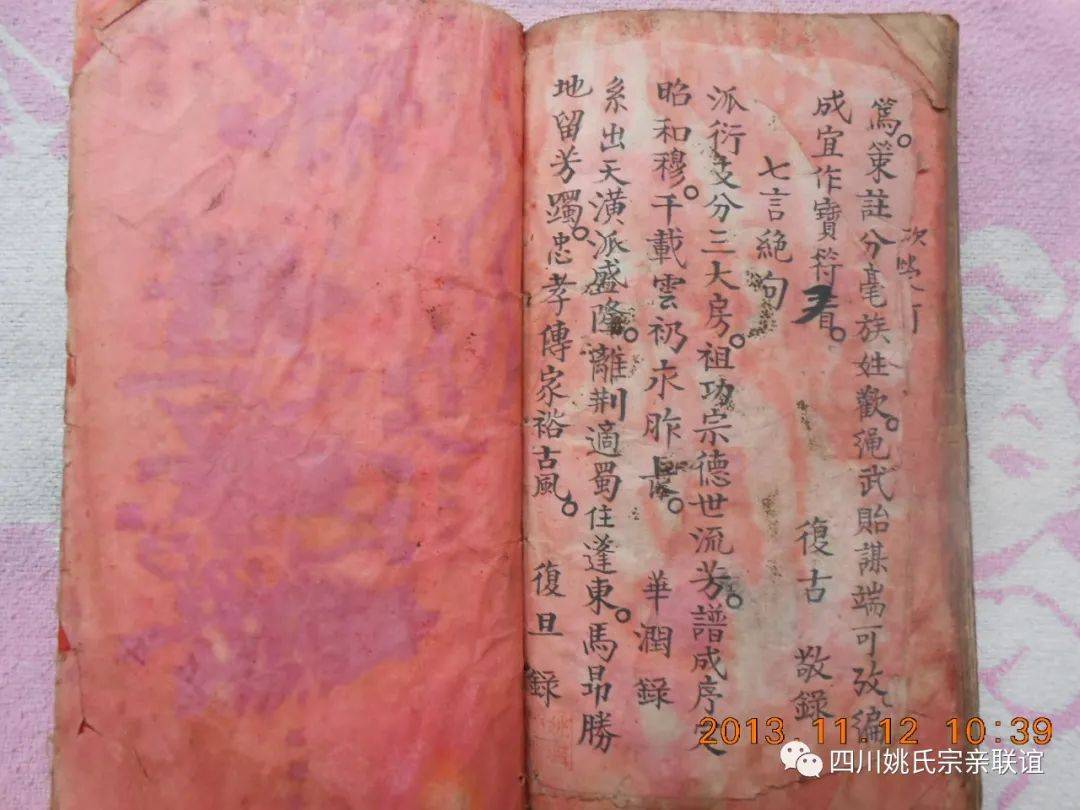 篤。策註分毫族姓歡。繩武貽謀端可攷編
成宜作寶符看。 復古 敬錄
七言絕句
派衍支分三大房。祖功宗德世流芳。譜成序定
昭和穆。千載雲礽永昨長。 華潤錄
系出天潢派盛隆。離荆適蜀住蓬東。馬昂勝
地留芳躅。忠孝傳家裕古風。 復旦 錄
2013.11.12 10:39
四川姚氏宗亲联谊